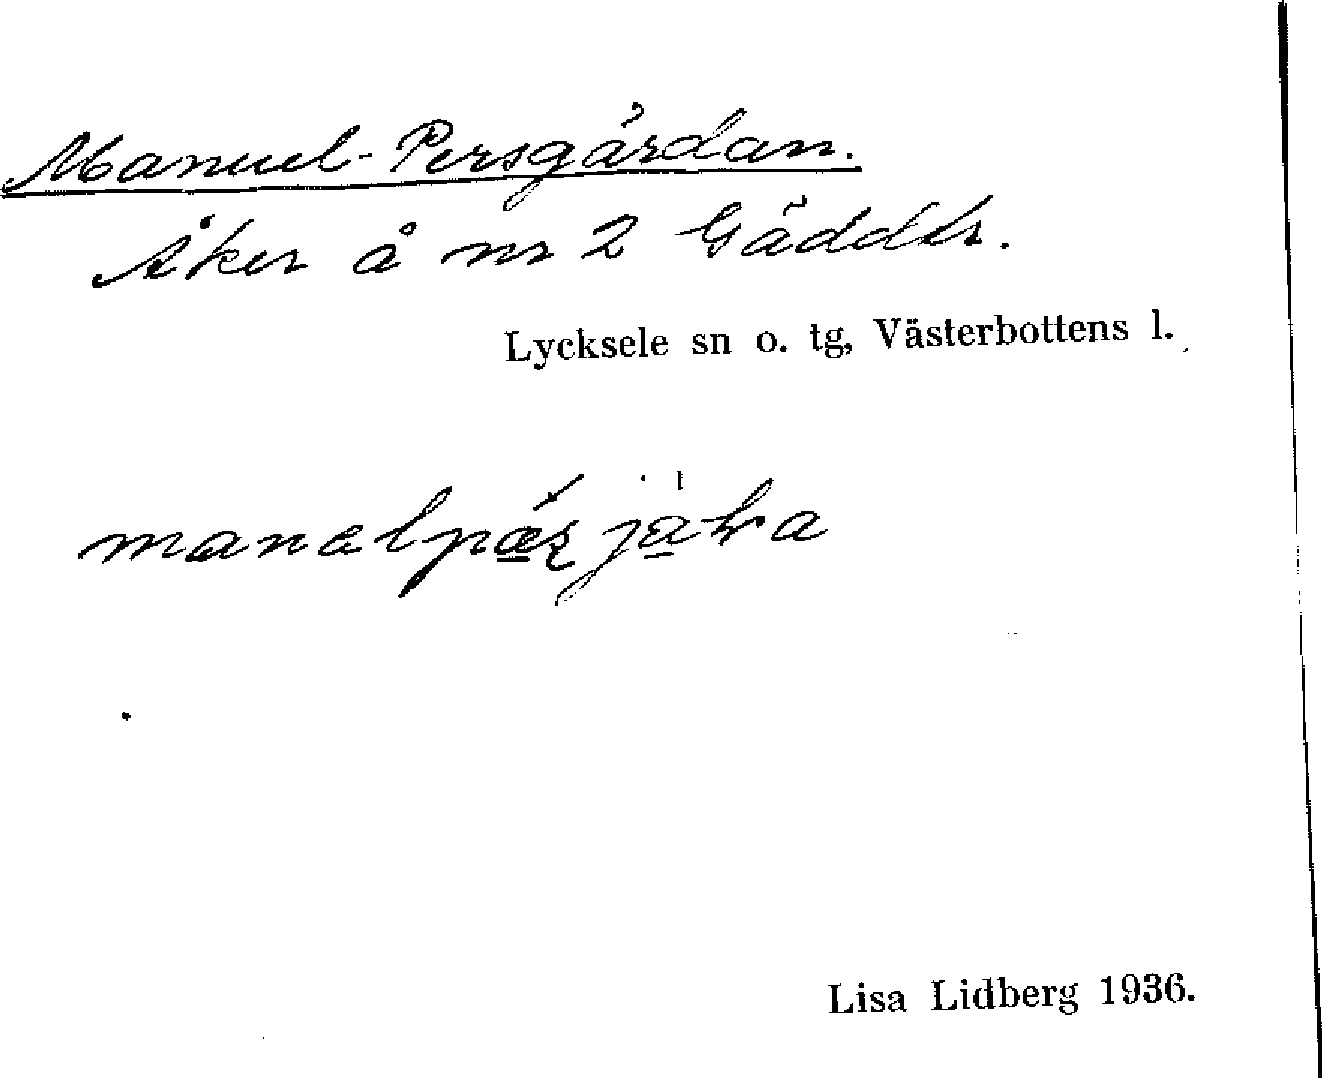 Manuel-Persgårdan.
Åker å nr 2 Gäddtr.
Lycksele sn o. tg, Västerbottens l.
Lisa Lidberg 1936.